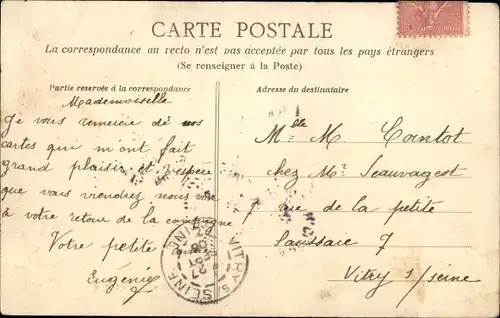 CARTE POSTALE
La correspondance au recto n'est pas acceptée par tous les pays étrangers
(Se renseigner à la Poste)
Partie reservée à la correspondance
Mademoiselle
Je vous remercie de nos
cartes qui m ont fait
grand plaisir et j'espère
que vous viendrez nous voir
à votre retour de la campagne
Votre petite amie
Eugenie
Adresse du destinataire
Mlle M Contot
chez Mr Seauvagest
7 rue de la petite
Saussaie 7
Vitry s/seine
VITRY
SEINE
27